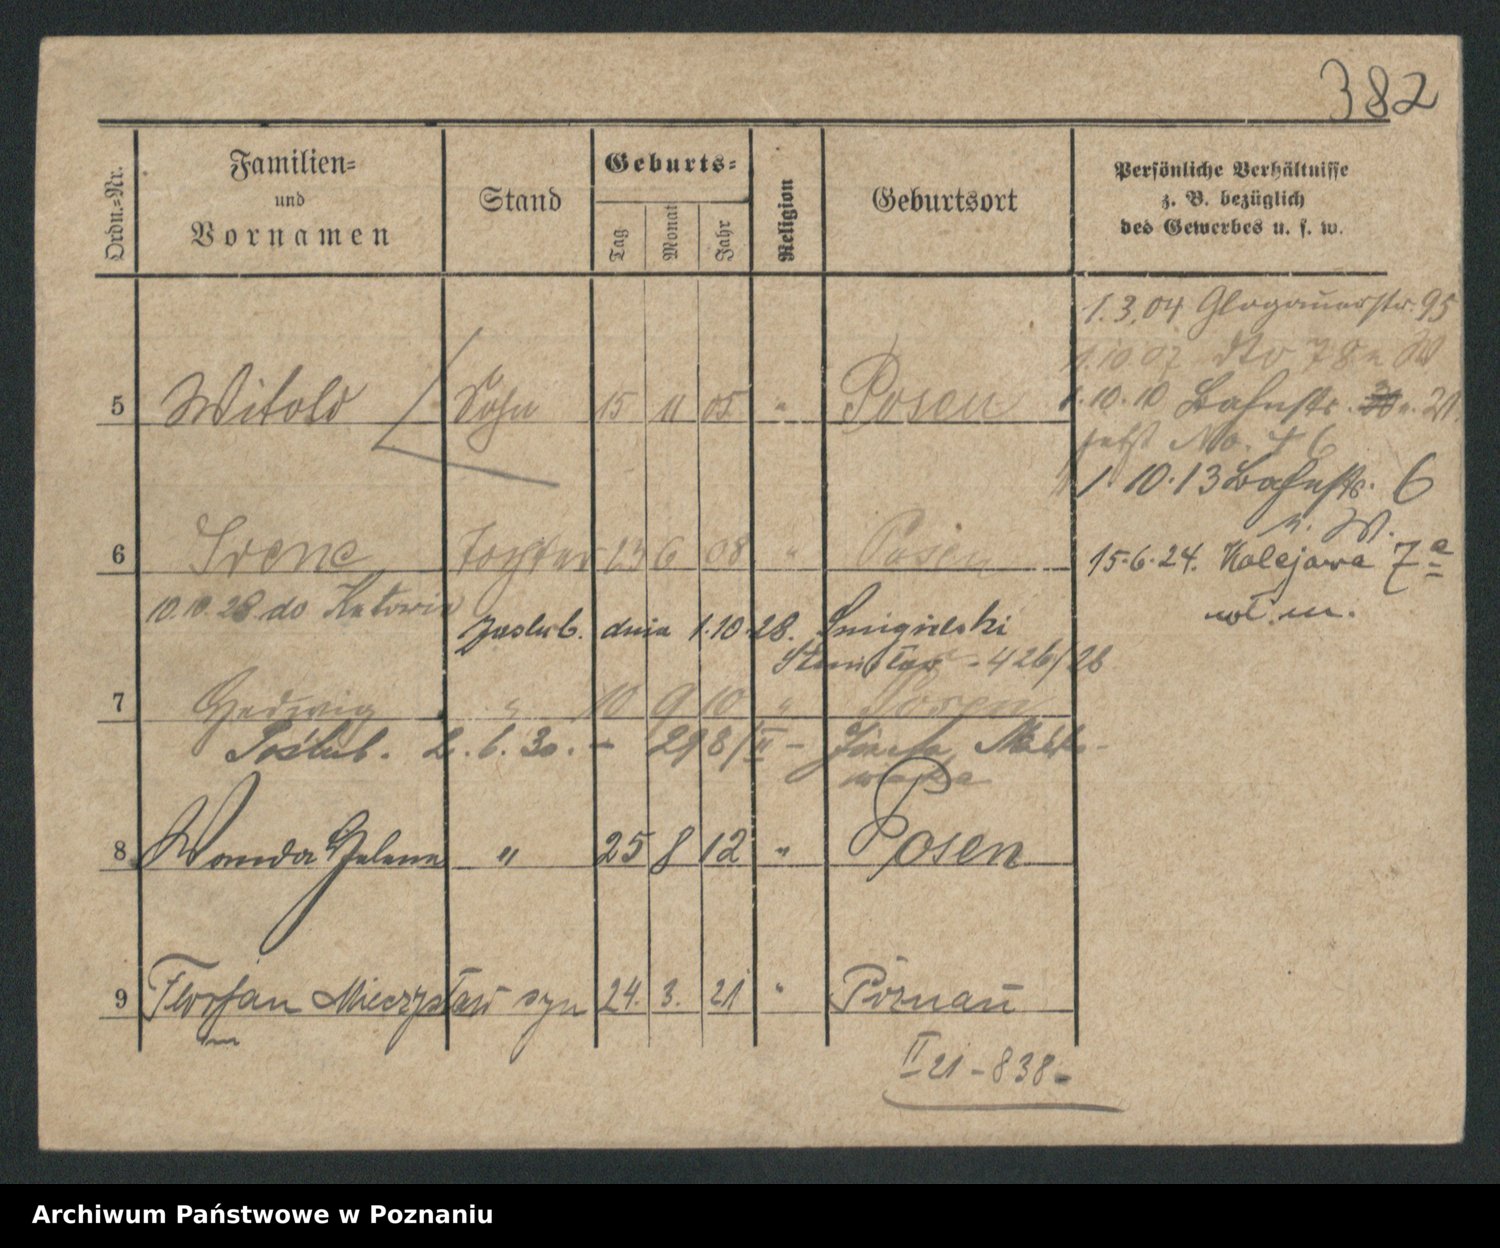 382
Ordn.-Nr.
Familien-
und
Vornamen
Stand
Geburts-
Tag
Monat
Jahr
Religion
Geburtsort
Persönliche Verhältnisse
z. B. bezüglich
des Gewerbes u. s. w.
1.3.04 Glogauerstr. 95
1.10.07 dto 78a W
5 Witold Sohn 15 11 05 " Posen
1.10.10 Bahnstr.
jetzt No. 6
1.10.13 Bahnstr. 6
n. W.
6 Irene Tochter 23 6 08 " Posen
15.6.24. Kolejowa 7a
10.10.28 do
zaślub. dnia 1.10.28. Smigielski
426/28
7 Hedwig " 10 9 10 " Posen
Poślub. 2.6.30. - 298/II - Józefa
8 Wanda Helena " 25 8 12 " Posen
9 Florjan Mieczysław syn 24. 3. 21 " Poznań
II 21-838-
Archiwum Państwowe w Poznaniu